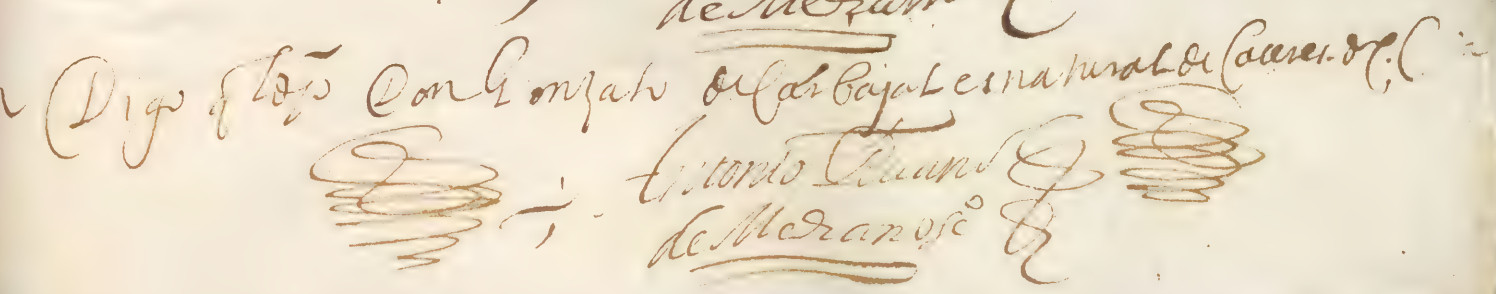 de Medrano
Digo q̃ el dho Don Gonzalo de Carbajal es natural de Caceres
Antonio Duand
de Medrano ssº